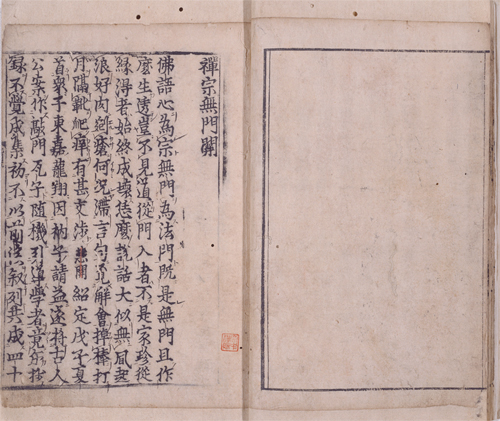 禪宗無門關
佛語心為宗無門為法門既是無門且作
麼生透豈不見道從門入者不是家珍從
緣得者始終成壞恁麼說話大似無風起
浪好肉剜瘡何況滯言句覓解會掉棒打
月隔靴爬痒有甚交涉慧開紹定戊子夏
首眾于東嘉龍翔因衲子請益遂將古人
公案作敲門瓦子隨機引導學者竟爾抄
錄不覺成集初不以前後叙列共成四十